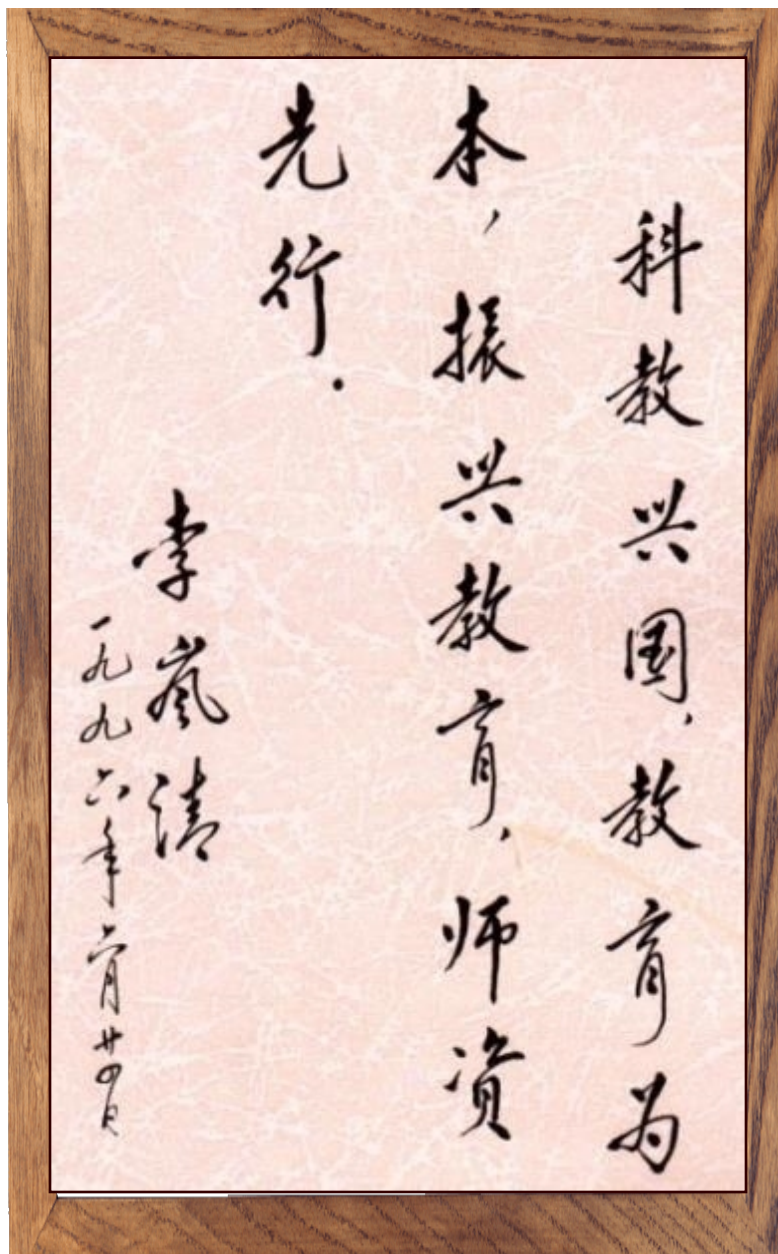 科教兴国,教育为
本,振兴教育,师资
先行.
李岚清
一九九六年六月廿四日